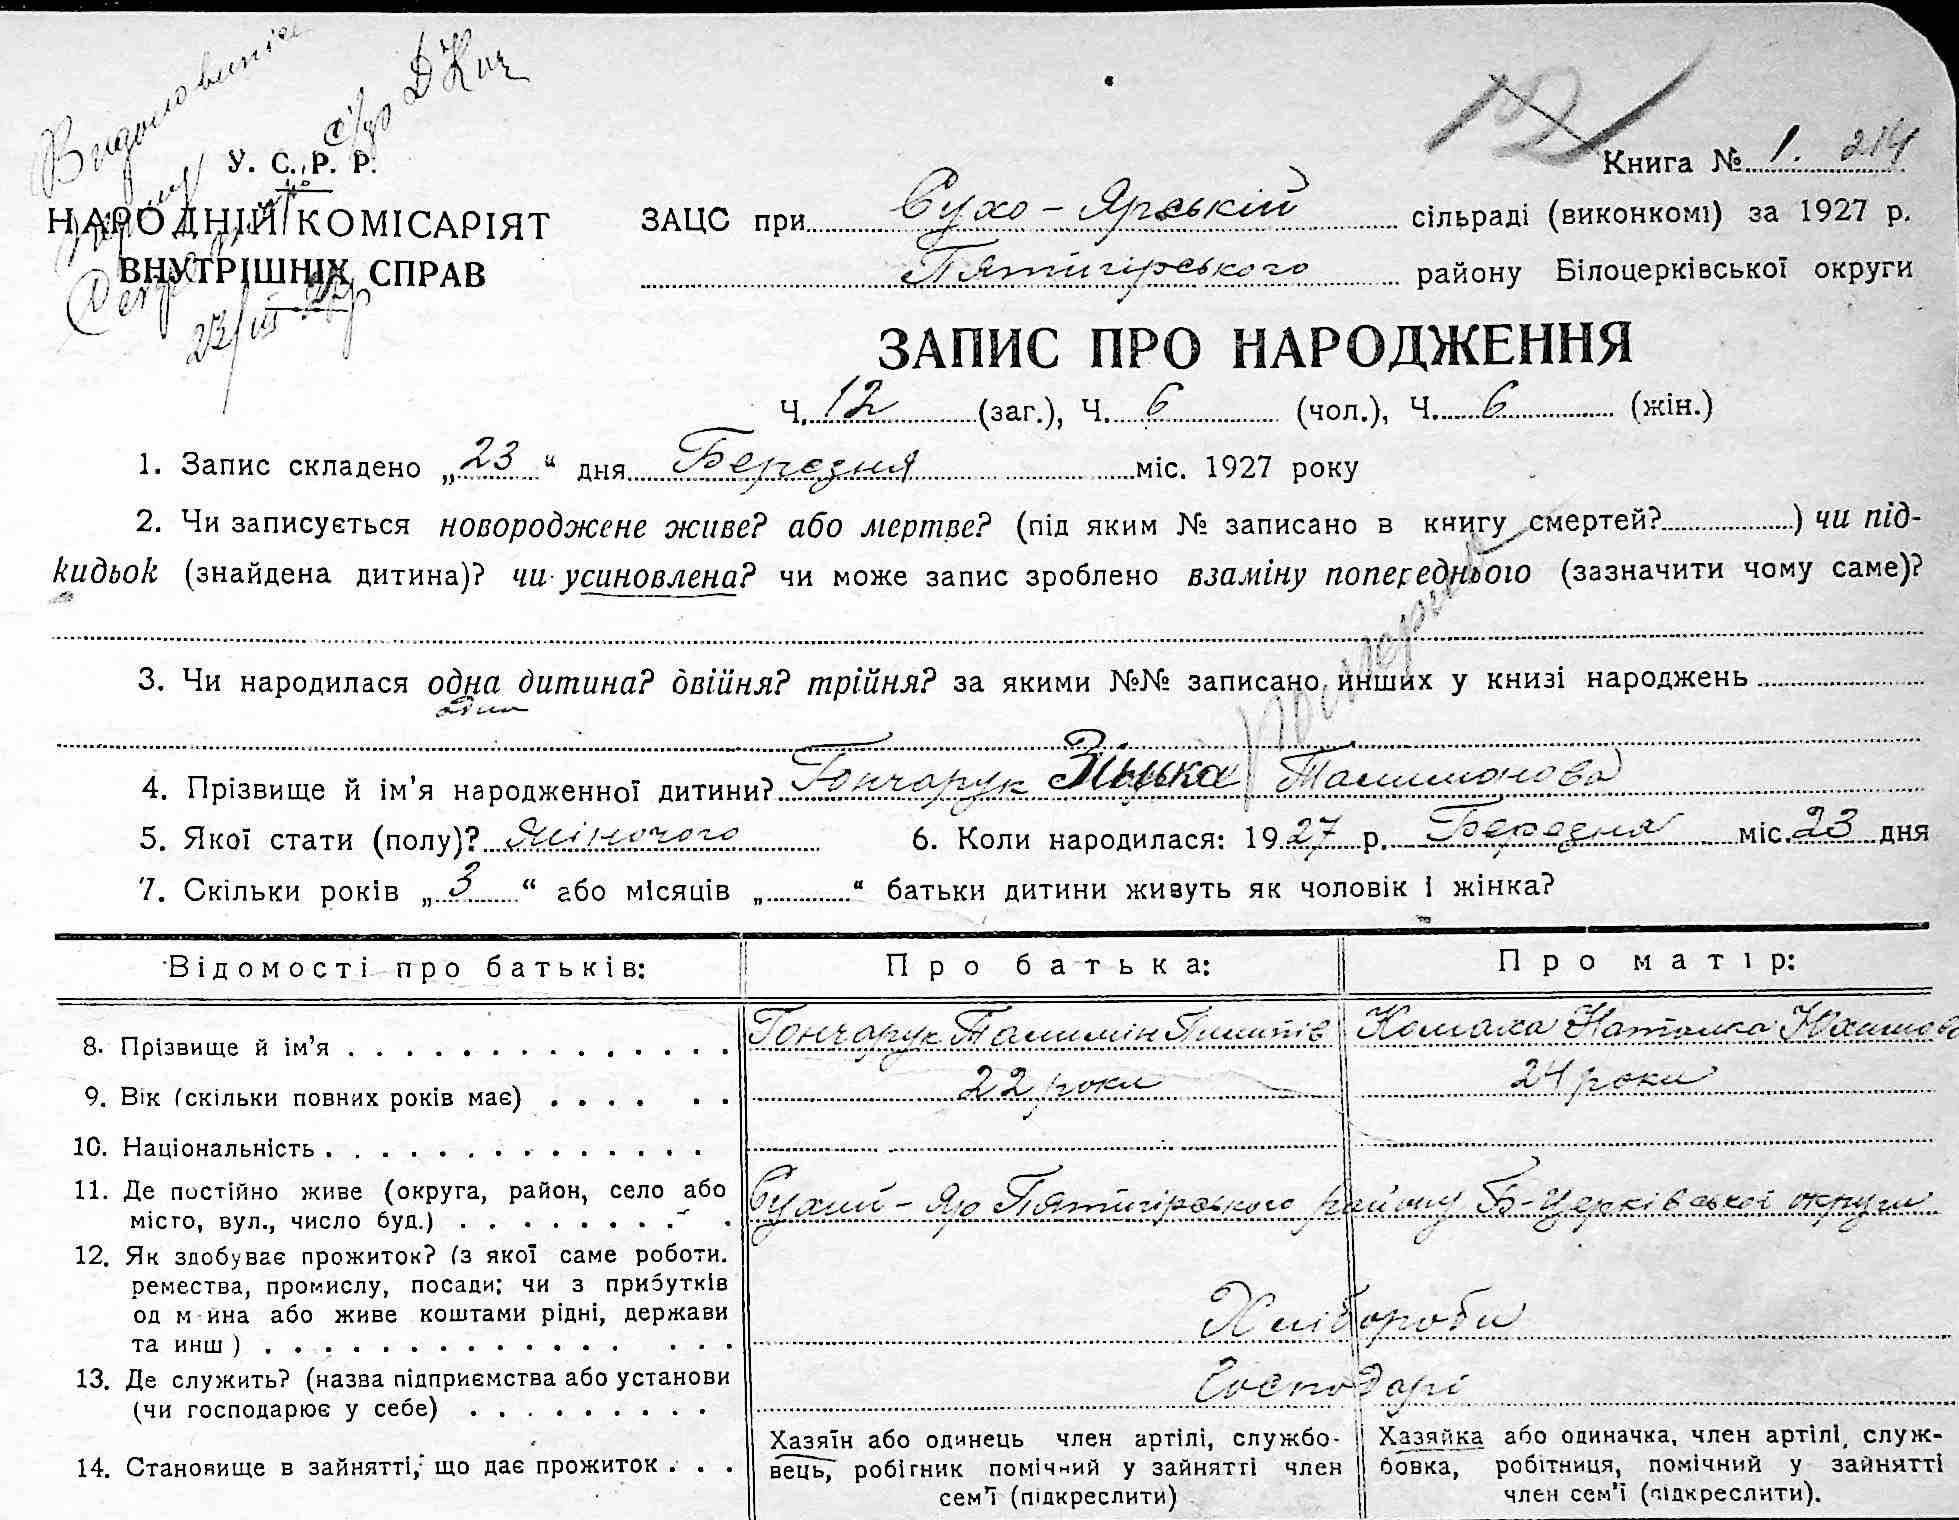 У. С. Р. Р.
НАРОДНІЙ КОМІСАРІЯТ
ВНУТРІШНІХ СПРАВ
23/III 27р
12
Книга № 1. 214
ЗАЦС при Сухо-Ярській сільраді (виконкомі) за 1927 р.
Пятигірського району Білоцерківської округи
ЗАПИС ПРО НАРОДЖЕННЯ
Ч. 12 (заг.), Ч. 6 (чол.), Ч. 6 (жін.)
1. Запис складено „23“ дня Березня міс. 1927 року
2. Чи записується новороджене живе? або мертве? (під яким № записано в книгу смертей?) чи під-
кидьок (знайдена дитина)? чи усиновлена? чи може запис зроблено взаміну попереднього (зазначити чому саме)?
3. Чи народилася одна дитина? двійня? трійня? за якими №№ записано инших у книзі народжень
одна
4. Прізвище й ім'я народженної дитини? Гончарук Зінька Талимонова
5. Якої стати (полу)? жіночого 6. Коли народилася: 1927 р. Березня міс. 23 дня
7. Скільки років „3“ або місяців „“ батьки дитини живуть як чоловік і жінка?
Відомості про батьків: Про батька: Про матір:
8. Прізвище й ім'я Гончарук Талимін Пилипів Наталка Юхимова
9. Вік (скільки повних років має) 22 роки 24 роки
10. Національність
11. Де постійно живе (округа, район, село або
місто, вул., число буд.) Сухий-Яр Пятигірського району Б-Церківської округи
12. Як здобуває прожиток? (з якої саме роботи.
ремества, промислу, посади; чи з прибутків
од майна або живе коштами рідні, держави
та инш) Хлібороби
13. Де служить? (назва підприємства або установи
(чи господарює у себе) Господарі
14. Становище в зайнятті, що дає прожиток
Хазяїн або одинець член артілі, службо-
вець, робітник помічний у зайнятті член
сем'ї (підкреслити)
Хазяйка або одиначка, член артілі, служ-
бовка, робітниця, помічний у зайнятті
член сем'ї (підкреслити).